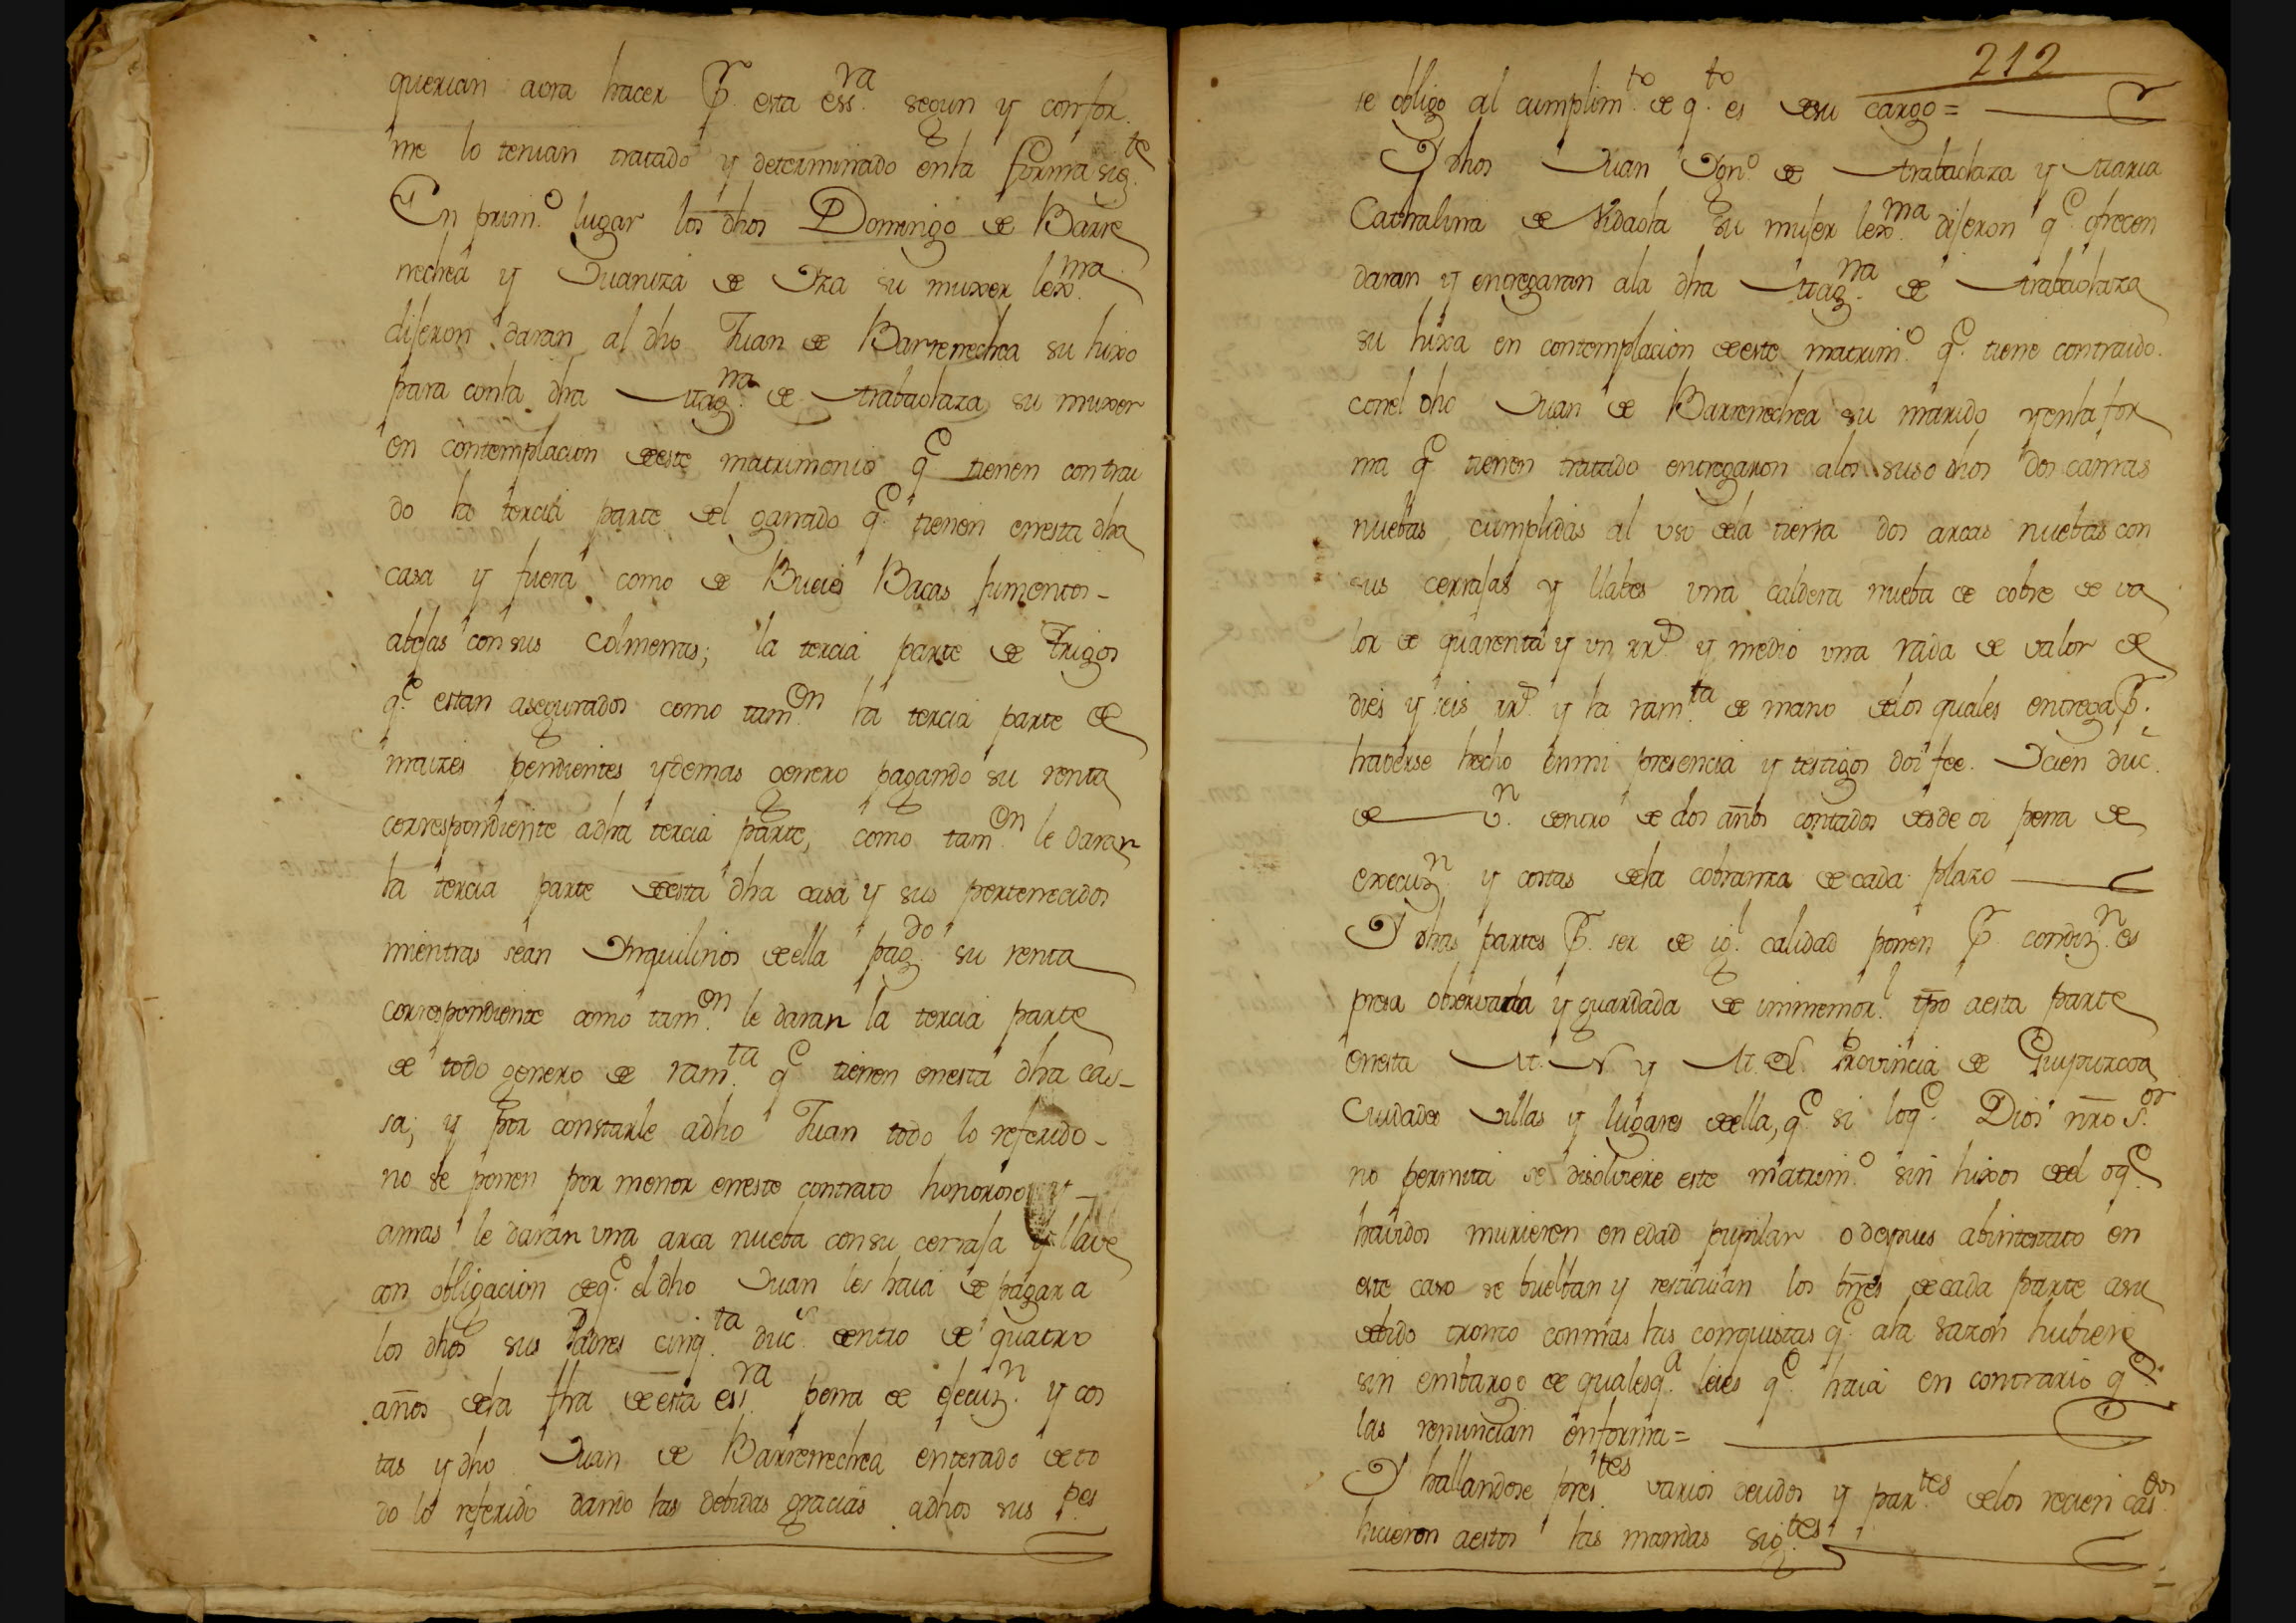 querian aora hacer P. esta ess.ra segun y confor
me lo tenian tratado y determinado enla forma sig.te
En prim.o lugar los dhos Domingo de Barre
nechea y Juaniza de Iza su muxer lex.ma
dijeron daran al dho Juan de Barrenechea su hixo
para conla dha Mag.na de trabaolaza su muxer
en contemplacion deeste matrimonio q.e tienen contrai
do la tercia parte del ganado q.e tienen enesta dha
casa y fuera como de Bueies Bacas jumentos
abejas con sus Colmenas; la tercia parte de trigos
q.e estan asegurados como tam.en la tercia parte de
maizes pendientes ydemas genero pagando su renta
correspondiente adha tercia parte, como tam.en le daran
la tercia parte deesta dha casa y sus pertenecidos
mientras sean Inquilinos deella pag.do su renta
correspondiente como tam.en le daran la tercia parte
de todo genero de ram.ta q.e tienen enesta dha cas-
sa; y por constarle adho Juan todo lo referido
no se ponen por menor eneste contrato honoroso y
amas le daran una arca nueba consu cerraja y llave
con obligacion deq.e el dho Juan les haia de pagar a
los dhos sus Padres cinq.ta duc.s dentro de quatro
años dela fha deesta ess.ra pena de ejecuz.n y cos
tas y dho Juan de Barrenechea enterado deto
do lo referido dando las debidas gracias adhos sus p.es
212
se obligo al cumplim.to de q.to es desu cargo=
I dhos Juan Ign.o de trabaolaza y Maria
Cathalina de Vidaola su mujer lex.ma dijeron q.e ofrecen
daran y entregaran ala dha Mag.na de trabaolaza
su hixa en contemplacion deeste matrim.o q.e tiene contraido
conel dho Juan de Barrenechea su marido yenla for
ma q.e tienen tratado entregaron alos suso dhos dos camas
nuebas cumplidas al uso dela tierra dos arcas nuebas con
sus cerrajas y llabes una caldera nueba de cobre de va
lor de quarenta y un rr.s y medio una rada de valor de
dies y seis rr.s y la ram.ta de mano delos quales entrega P.
haverse hecho enmi presencia y testigos doi fee. I cien duc.s
de v.n dentro de dos años contados desde oi pena de
execuz.n y costas dela cobranza decada plazo
I dhas partes P. ser de ig.l calidad ponen P. condiz.n es
presa observada y guardada de inmemor.l tpo aesta parte
enesta M. N. y M. L. Provincia de Guipuzcoa
Ciudades villas y lugares deella, q.e si loq.e Dios nro S.or
no permita se disolviere este matrim.o sin hixos del oq.e
havidos murieren en edad pupilar o depues abintestato en
este caso se bueltan y restituian los bnes decada parte asu
devido tronco conmas las conquistas q.e ala sazon hubiere
sin embargo de qualesq.a leies q.e haia en contrario q.e
las renuncian enforma=
I hallandose pres.tes varios deudos y par.tes delos recien cas.dos
hicieron aestos las mandas sig.tes